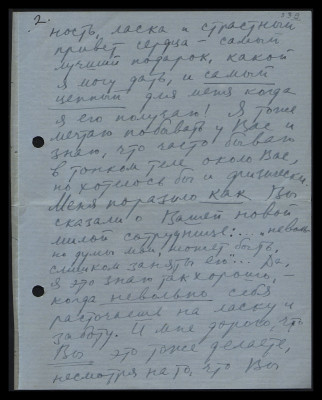 2.
ность, ласка и страстный
привет сердца – самый
лучший подарок, какой
я могу дать, и самый
ценный для меня когда
я его получаю! Я тоже
мечтаю побывать у Вас и
знаю, что часто бываю
в тонком теле около Вас,
но хотелось бы и физически.
Меня поразило как Вы
сказали о Вашей новой
милой сотруднице:... "невольно
но думы мои, может быть,
слишком заняты ею"... Да,
я это знаю так хорошо, –
когда невольно себя
расточаешь на ласку и
заботу. И мне дорого, что
Вы это тоже делаете,
несмотря на то, что Вы